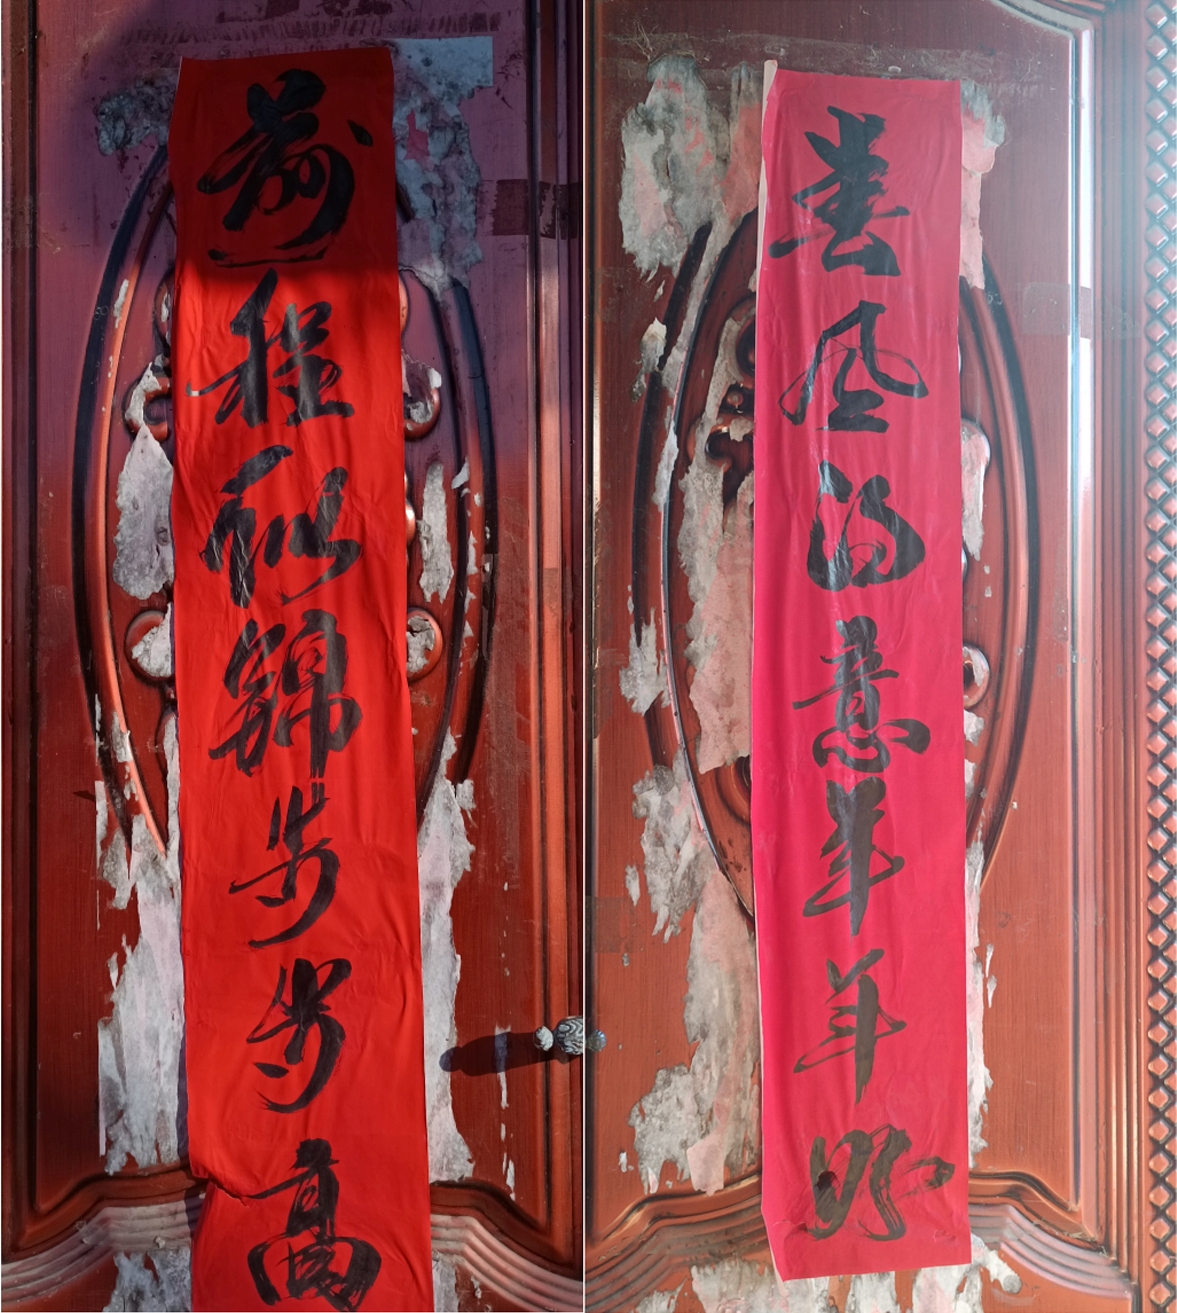 春风得意年年好
前程似錦步步高